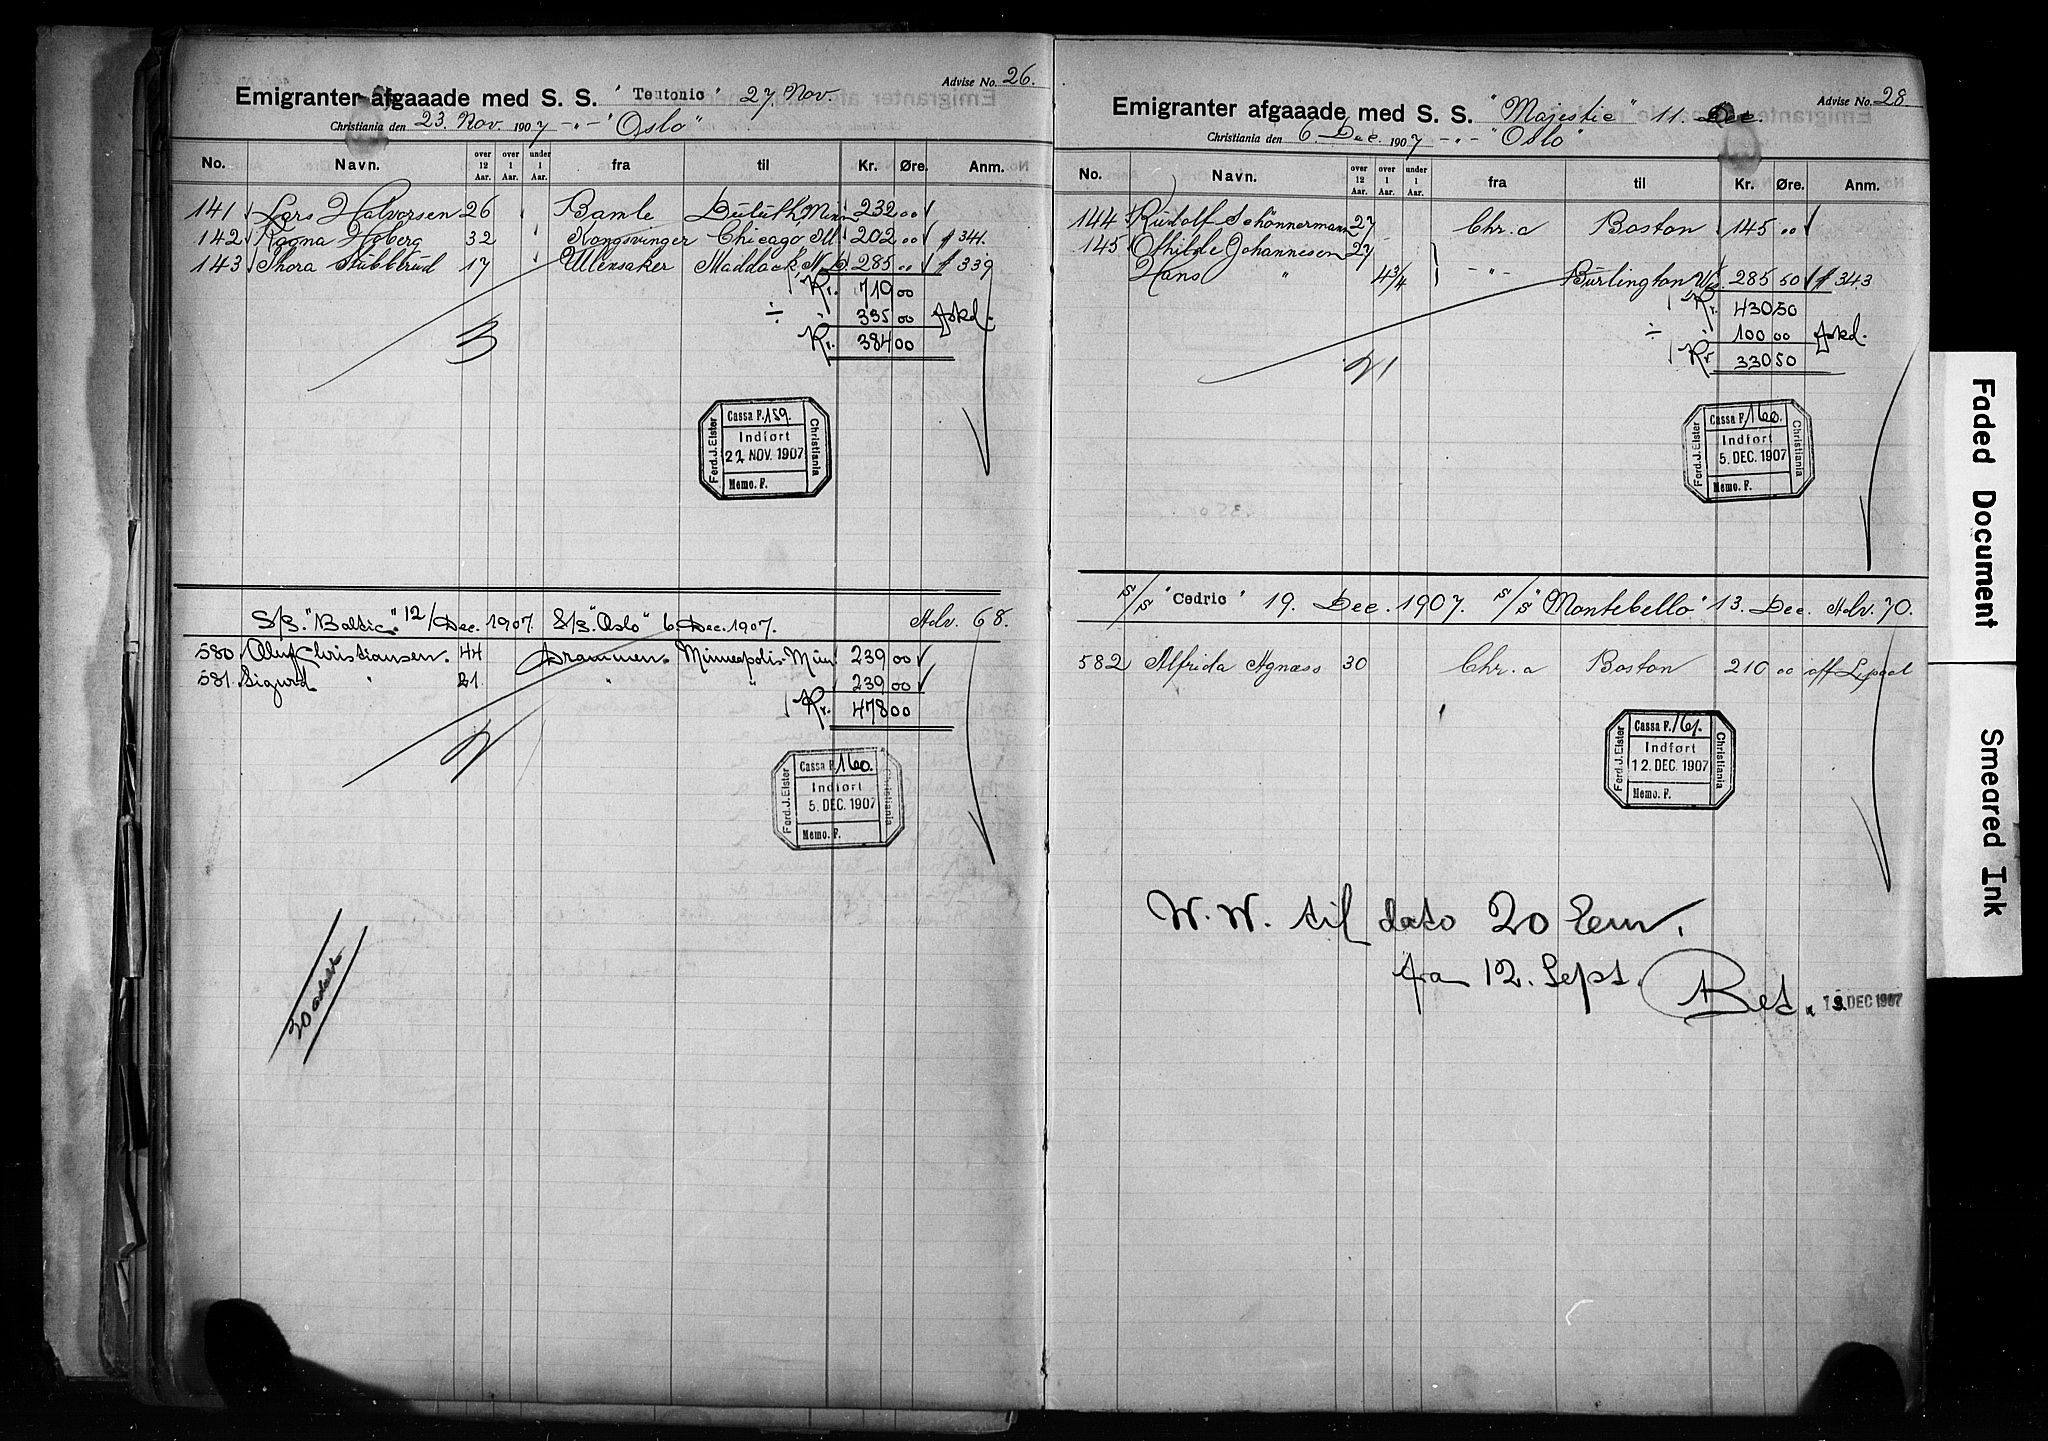 Advise No. 26.
Emigranter afgaaade med S. S. "Teutonic" 27 Nov.
Christiania den 23. Nov. 1907 -"- "Oslo"
No. Navn. over 12 Aar. over 1 Aar. under 1 Aar. fra til Kr. Øre. Anm.
141 Lars Halvorsen 26 Bamle Duluth, Minn 232 00
142 Ragna Hoberg 32 Kongsvinger Chicago, Ill. 202 00 341.
143 Thora Stubberud 17 Ullensaker Maddock, N.D. 285 " 339
Kr. 719 00
÷ " 335 00 Afkd.
3 Kr. 384 00
Cassa F. 159.
Indført
22 NOV. 1907
Memo. F.
Ferd. J. Elster
Christiania
S/S. "Baltic" 12/Dec. 1907. S/S. "Oslo" 6 Dec. 1907. Adv. 68.
580 Oluf Christiansen. 44 Drammen. Minneapolis. Minn 239 00
581. Sigurd " 21 " " 239 00
Kr. 478 00
2
Cassa F. 160.
Indført
5. DEC. 1907
Memo. F.
Ferd. J. Elster
Christiania
Advise No. 28
Emigranter afgaaade med S. S. "Majestic" 11. Dec.
Christiania den 6. Dec. 1907 -"- "Oslo"
No. Navn. over 12 Aar. over 1 Aar. under 1 Aar. fra til Kr. Øre. Anm.
144 Rudolf Schönnermann 27 Chr.a Boston 145 00
145 Othilde Johannesen 27
Hans " 4 3/4 -"- Burlington Wis. 285 50 343
Kr. 430 50
÷ " 100 00 Afkd.
Kr 330 50
2 1
Cassa F. 160.
Indført
5. DEC. 1907
Memo. F.
Ferd. J. Elster
Christiania
S/S "Cedric" 19. Dec. 1907. S/S "Montebello" 13. Dec. Adv. 70.
582 Alfrida Agnæss 30 Chr.a Boston 210 00 aff Lpool
Cassa F. 161.
Indført
12. DEC. 1907
Memo. F.
Ferd. J. Elster
Christiania
W. W. til dato 20
fra 12. Sept. Bet. 13. DEC 1907
Faded Document
Smeared Ink